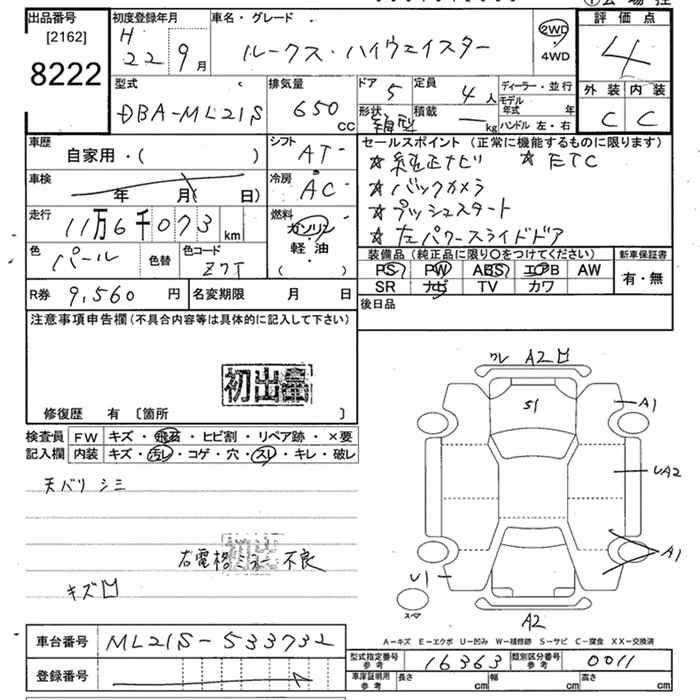 出品番号 初度登録年月 車名・グレード 評価点
[2162] H
8222 22 9月 ルークス・ハイウェイスター 2WD・4WD 4
型式 排気量 ドア 定員 ディーラー・並行 外装 内装
DBA-ML21S 650cc 5 4人 モデル年式 年 C C
形状 箱型 積載 ー kg ハンドル 左・右
車歴 シフト セールスポイント (正常に機能するものに限ります)
自家用・( ) AT ☆純正ナビ ☆ETC
車検 冷房 ☆バックカメラ
年 月( 日) AC ☆プッシュスタート
走行 燃料 ☆左パワースライドドア
11万6千073km ガソリン・軽・油・( )
色 パール 色替 色コード Z7T
装備品 (純正品に限り○をつけてください) 新車保証書
PS PW ABS エアB AW 有・無
R券 9,560円 名変期限 月 日 SR ナビ TV カワ
後日品
注意事項申告欄 (不具合内容等は具体的に記入して下さい)
初出品
修復歴 有 〔箇所 〕
検査員 FW キズ・飛石・ヒビ割・リペア跡・×要
記入欄 内装 キズ・汚レ・コゲ・穴・スレ・キレ・破レ
天バリ シミ
右電格ミラー不良
キズ凹
ワレ A2凹
S1
A1
UA2
A1
U1
スペア
A2
A-キズ E-エクボ U-凹み W-補修跡 S-サビ C-腐食 XX-交換済
車台番号 ML21S-533732
型式指定番号 参考 16363 類別区分番号 参考 0011
登録番号 車庫証明用 参考 長さ cm 幅 cm 高さ cm